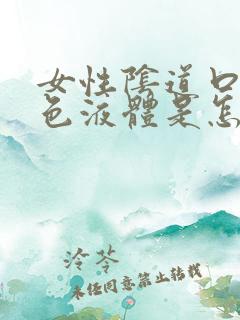 女性陰道口
色液體是怎
泠苓
未经同意禁止转载